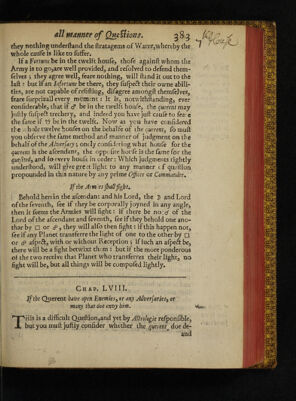 all manner of Questions.
383
they nothing understand the stratagems of Warre, whereby the
whole cause is like to suffer.
If a Fortune be in the twelft house, those against whom the
Army is to go, are well provided, and resolved to defend them-
selves ; they agree well, feare nothing, will stand it out to the
last : but if an Infortune be there, they suspect their owne abili-
ties, are not capable of resisting, disagree amongst themselves,
feare surprisall every moment : It is, notwithstanding, ever
considerable, that if ♂ be in the twelft house, the querent may
justly suspect trechery, and indeed you have just cause to see e
the same if ♄ be in the twelft. Now as you have considered
the whole twelve houses on the behalfe of the querent, so must
you observe the same method and manner of judgment on the
behalf of the Adversary; onely considering what house for the
querent is the ascendant, the opposite house is the same for the
quesited, and so every house in order: Which judgments rightly
understood, will give great light to any manner of question
propounded in this nature by any prime Officer or Commander.
If the Armies shall fight.
Behold herein the ascendant and his Lord, the ☽ and Lord
of the seventh, see if they be corporally joyned in any angle,
then it seems the Armies will fight : if there be no ☌ of the
Lord of the ascendant and seventh, see if they behold one ano-
ther by □ or ☍, they will also then fight : if this happen not,
see if any Planet transferre the light of one to the other by □
or ☍ aspect, with or without Reception ; if such an aspect be,
there will be a fight betwixt them : but if the more ponderous
of the two receive that Planet who transferres their light, no
fight will be, but all things will be composed lightly.
CHAP. LVIII.
If the Querent have open Enemies, or any Adversaries, or
many that doe envy him.
THis is a difficult Question, and yet by Astrologie responsible,
but you must justly consider whether the querent doe de-
and